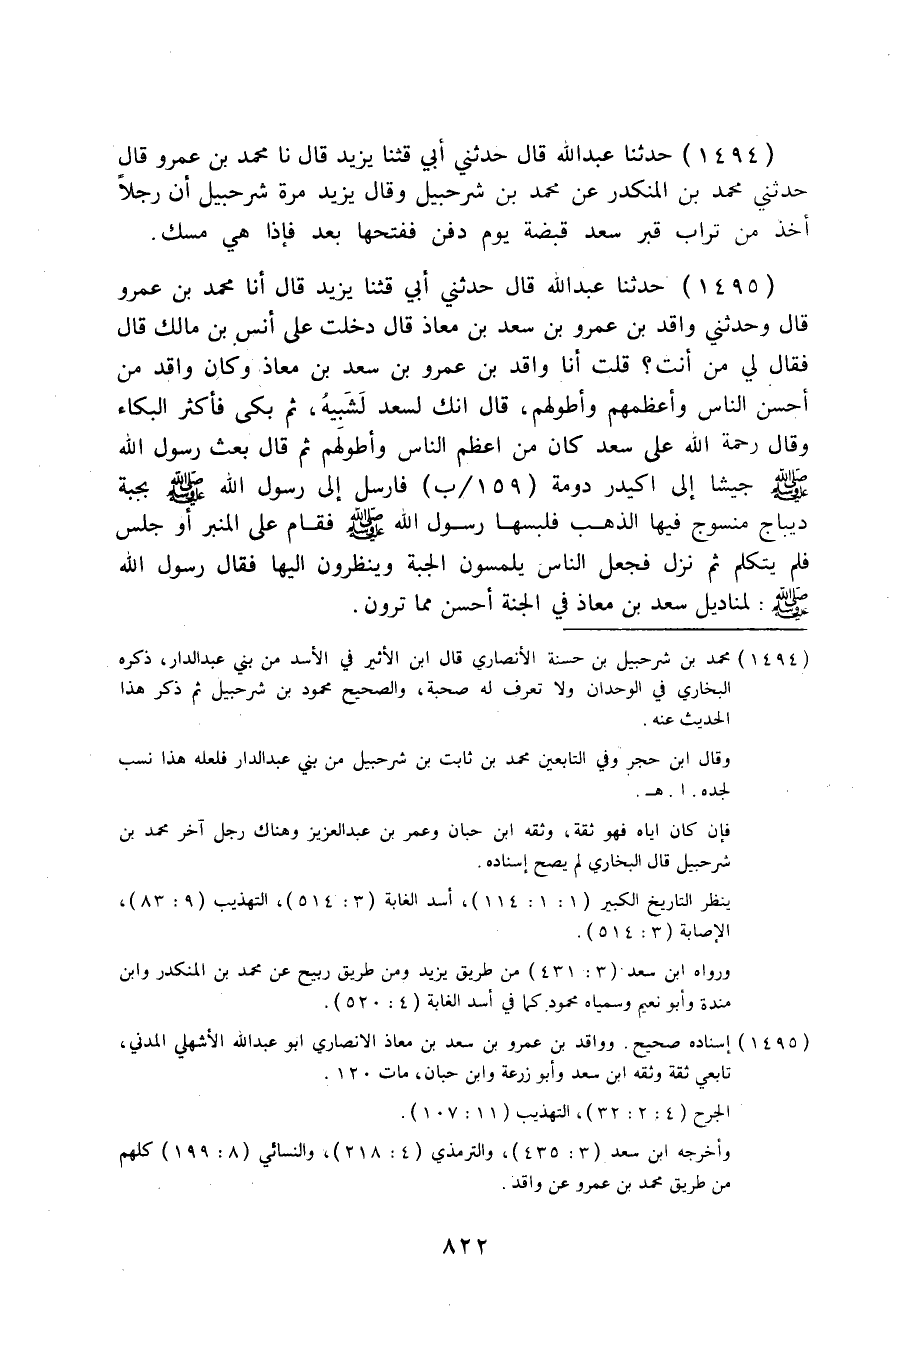 (١٤٩٤) حدثنا عبدالله قال حدثني أبي قثنا يزيد قال نا محمد بن عمرو قال
حدثني محمد بن المنكدر عن محمد بن شرحبيل وقال يزيد مرة شرحبيل أن رجلاً
أخذ من تراب قبر سعد قبضة يوم دفن ففتحها بعد فإذا هي مسك.
(١٤٩٥) حدثنا عبدالله قال حدثني أبي قثنا يزيد قال أنا محمد بن عمرو
قال وحدثني واقد بن عمرو بن سعد بن معاذ قال دخلت على أنس بن مالك قال
فقال لي من أنت؟ قلت أنا واقد بن عمرو بن سعد بن معاذ وكان واقد من
أحسن الناس وأعظمهم وأطولهم، قال انك لسعد لَشَبِيهُ، ثم بكى فأكثر البكاء
وقال رحمة الله على سعد كان من اعظم الناس وأطولهم ثم قال بعث رسول الله
ﷺ جيشا إلى اكيدر دومة (١٥٩/ب) فارسل إلى رسول الله ﷺ بجبة
ديباج منسوج فيها الذهب فلبسها رسول الله ﷺ فقام على المنبر أو جلس
فلم يتكلم ثم نزل فجعل الناس يلمسون الجبة وينظرون اليها فقال رسول الله
ﷺ : لمناديل سعد بن معاذ في الجنة أحسن مما ترون.
(١٤٩٤) محمد بن شرحبيل بن حسنة الأنصاري قال ابن الأثير في الأسد من بني عبدالدار، ذكره
البخاري في الوحدان ولا تعرف له صحبة، والصحيح محمود بن شرحبيل ثم ذكر هذا
الحديث عنه.
وقال ابن حجر وفي التابعين محمد بن ثابت بن شرحبيل من بني عبدالدار فلعله هذا نسب
لجده. ا. هـ.
فإن كان اياه فهو ثقة، وثقه ابن حبان وعمر بن عبدالعزيز وهناك رجل آخر محمد بن
شرحبيل قال البخاري لم يصح إسناده.
ينظر التاريخ الكبير (١: ١: ١١٤)، أسد الغابة (٣: ٥١٤)، التهذيب (٩: ٨٣)،
الإصابة (٣: ٥١٤).
ورواه ابن سعد (٣: ٤٣١) من طريق يزيد ومن طريق ربيح عن محمد بن المنكدر وابن
مندة وأبو نعيم وسمياه محمود كما في أسد الغابة (٤: ٥٢٠).
(١٤٩٥) إسناده صحيح. وواقد بن عمرو بن سعد بن معاذ الانصاري ابو عبدالله الأشهلي المدني،
تابعي ثقة وثقه ابن سعد وأبو زرعة وابن حبان، مات ١٢٠.
الجرح (٤: ٢: ٣٢)، التهذيب (١١: ١٠٧).
وأخرجه ابن سعد (٣: ٤٣٥)، والترمذي (٤: ٢١٨)، والنسائي (٨: ١٩٩) كلهم
من طريق محمد بن عمرو عن واقد.
٨٢٢